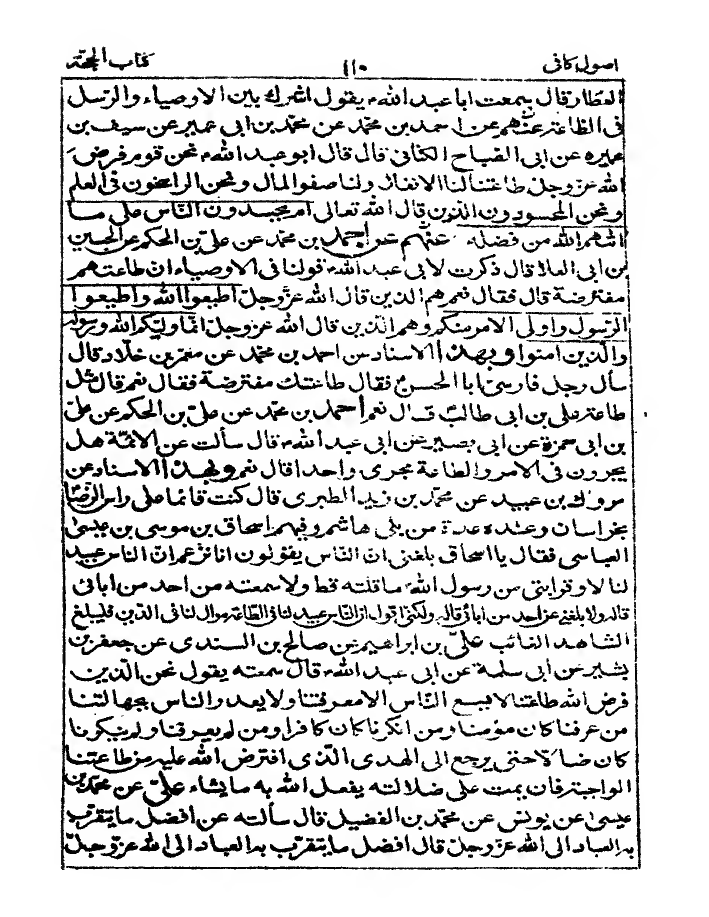 اصول كافى ١١٠ كتاب الحجة
العطار قال سمعت ابا عبد الله ء يقول اشرك بين الاوصياء والرسل
فى الطاعة عنهم عن احمد بن محمد عن محمد بن ابى عمير عن سيف بن
عميره عن ابى الصباح الكنانى قال قال ابو عبد الله ء نحن قوم فرض
الله عز وجل طاعتنا لنا الانفال ولنا صفو المال ونحن الراسخون فى العلم
ونحن المحسودون الذين قال الله تعالى ام يحسدون الناس على ما
اتاهم الله من فضله عنهم عن احمد بن محمد عن على بن الحكم عن الحسين
بن ابى العلا قال ذكرت لابى عبد الله ء قولنا فى الاوصياء ان طاعتهم
مفترضة قال فقال نعم هم الذين قال الله عز وجل اطيعوا الله واطيعوا
الرسول واولى الامر منكم وهم الذين قال الله عز وجل انما وليكم الله ورسوله
والذين امنوا وبهذا الاسناد عن احمد بن محمد عن معمر بن خلاد قال
سأل رجل فارسى ابا الحسن ع فقال طاعتك مفترضة فقال نعم قال مثل
طاعة على بن ابى طالب قال نعم احمد بن محمد عن على بن الحكم عن على
بن ابى حمزة عن ابى بصير عن ابى عبد الله ء قال سألت عن الائمة هل
يجرون فى الامر والطاعة مجرى واحد اقال نعم وبهذا الاسناد عن
مروك بن عبيد عن محمد بن زيد الطبرى قال كنت قائما على راس الرضا
بخراسان وعنده عدة من بنى هاشم وفيهم اسحاق بن موسى بن عيسى
العباسى فقال يا اسحاق بلغنى ان الناس يقولون انا نزعم ان الناس عبيد
لنا لا وقرابتى من رسول الله ما قلته قط ولا سمعته من احد من ابائى
قاله ولا بلغنى عن احد من ابائى قاله ولكنى اقول ان الناس عبيد لنا فى الطاعة موال لنا فى الدين فليبلغ
الشاهد الغائب على بن ابراهيم عن صالح بن السندى عن جعفر بن
بشير عن ابى سلمة عن ابى عبد الله ء قال سمعته يقول نحن الذين
فرض الله طاعتنا لا يسع الناس الا معرفتنا ولا يعد والناس بجهالتنا
من عرفنا كان مؤمنا ومن انكرنا كان كافرا ومن لم يعرفنا ولم ينكرنا
كان ضالا حتى يرجع الى الهدى الذى افترض الله عليه من طاعتنا
الواجبة فان يمت على ضلالته يفعل الله به ما يشاء على عن محمد بن
عيسى عن يونس عن محمد بن الفضيل قال سألته عن افضل ما يتقرب
به العباد الى الله عز وجل قال افضل ما يتقرب به العباد الى الله عز وجل